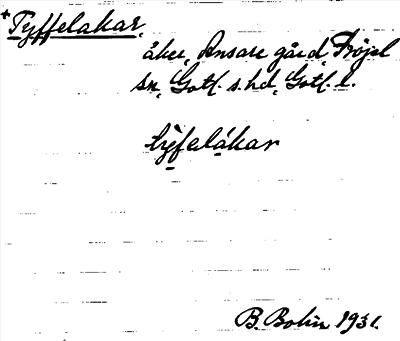 +Tyffelakar,
åker, Ansare gård, Fröjel
sn, Gotl. s. hd, Gotl. l.
tỳfelákar
B. Bolin 1931.